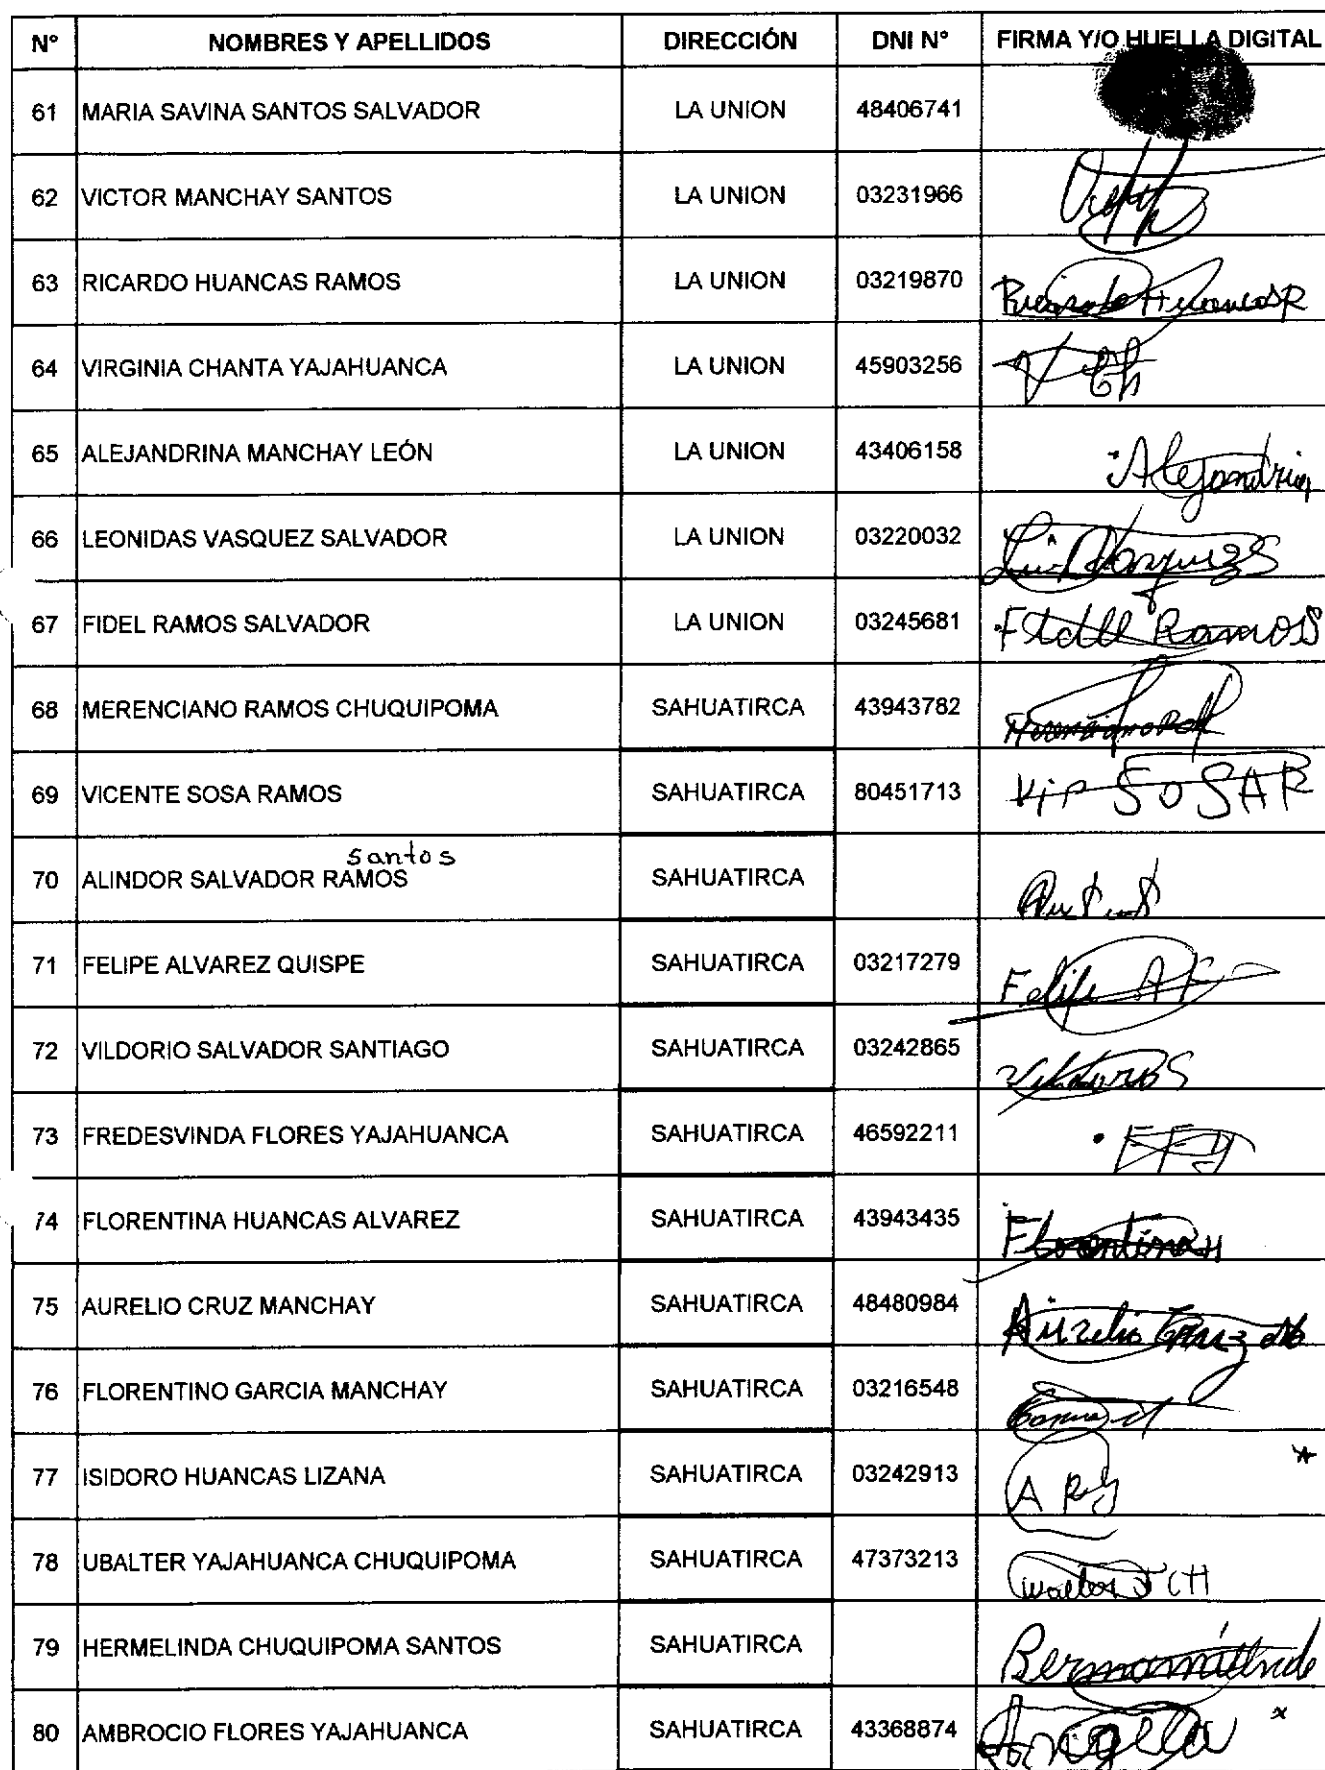 N° NOMBRES Y APELLIDOS DIRECCIÓN DNI N° FIRMA Y/O HUELLA DIGITAL
61 MARIA SAVINA SANTOS SALVADOR LA UNION 48406741
62 VICTOR MANCHAY SANTOS LA UNION 03231966
63 RICARDO HUANCAS RAMOS LA UNION 03219870 Ricardo Huancas R
64 VIRGINIA CHANTA YAJAHUANCA LA UNION 45903256 V Ch
65 ALEJANDRINA MANCHAY LEÓN LA UNION 43406158 Alejandrin
66 LEONIDAS VASQUEZ SALVADOR LA UNION 03220032
67 FIDEL RAMOS SALVADOR LA UNION 03245681 Fidell Ramos
68 MERENCIANO RAMOS CHUQUIPOMA SAHUATIRCA 43943782
69 VICENTE SOSA RAMOS SAHUATIRCA 80451713 SOSA R
santos
70 ALINDOR SALVADOR RAMOS SAHUATIRCA
71 FELIPE ALVAREZ QUISPE SAHUATIRCA 03217279 Felipe A
72 VILDORIO SALVADOR SANTIAGO SAHUATIRCA 03242865
73 FREDESVINDA FLORES YAJAHUANCA SAHUATIRCA 46592211 FFY
74 FLORENTINA HUANCAS ALVAREZ SAHUATIRCA 43943435 Florentina H
75 AURELIO CRUZ MANCHAY SAHUATIRCA 48480984 Aurelio Cruz
76 FLORENTINO GARCIA MANCHAY SAHUATIRCA 03216548
77 ISIDORO HUANCAS LIZANA SAHUATIRCA 03242913 A
78 UBALTER YAJAHUANCA CHUQUIPOMA SAHUATIRCA 47373213 CH
79 HERMELINDA CHUQUIPOMA SANTOS SAHUATIRCA
80 AMBROCIO FLORES YAJAHUANCA SAHUATIRCA 43368874